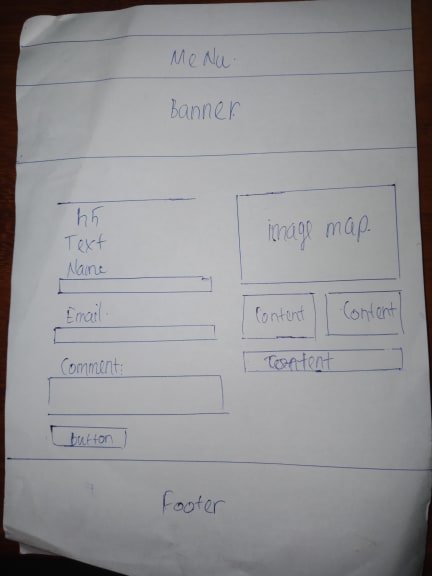 MeNu.
Banner
h5
Text
Name
Email.
Comment:
button
image map.
Content
Content
Content
Footer